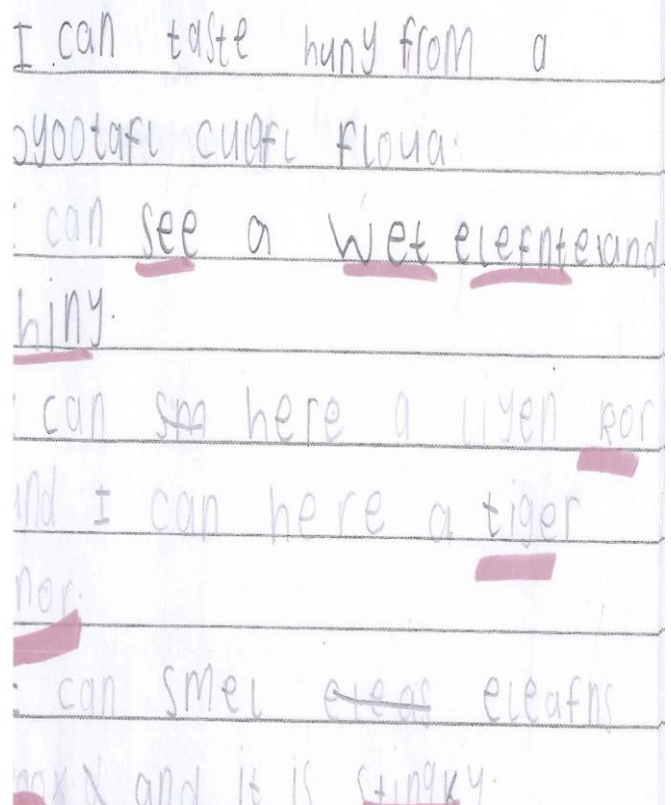 I can taste huny from a
byootafl culafl floua.
can see a wet elefnte and
hiny.
can sm here a liyen ror
and I can here a tiger
ror.
can smel eleas eleafns
and it is stingky.